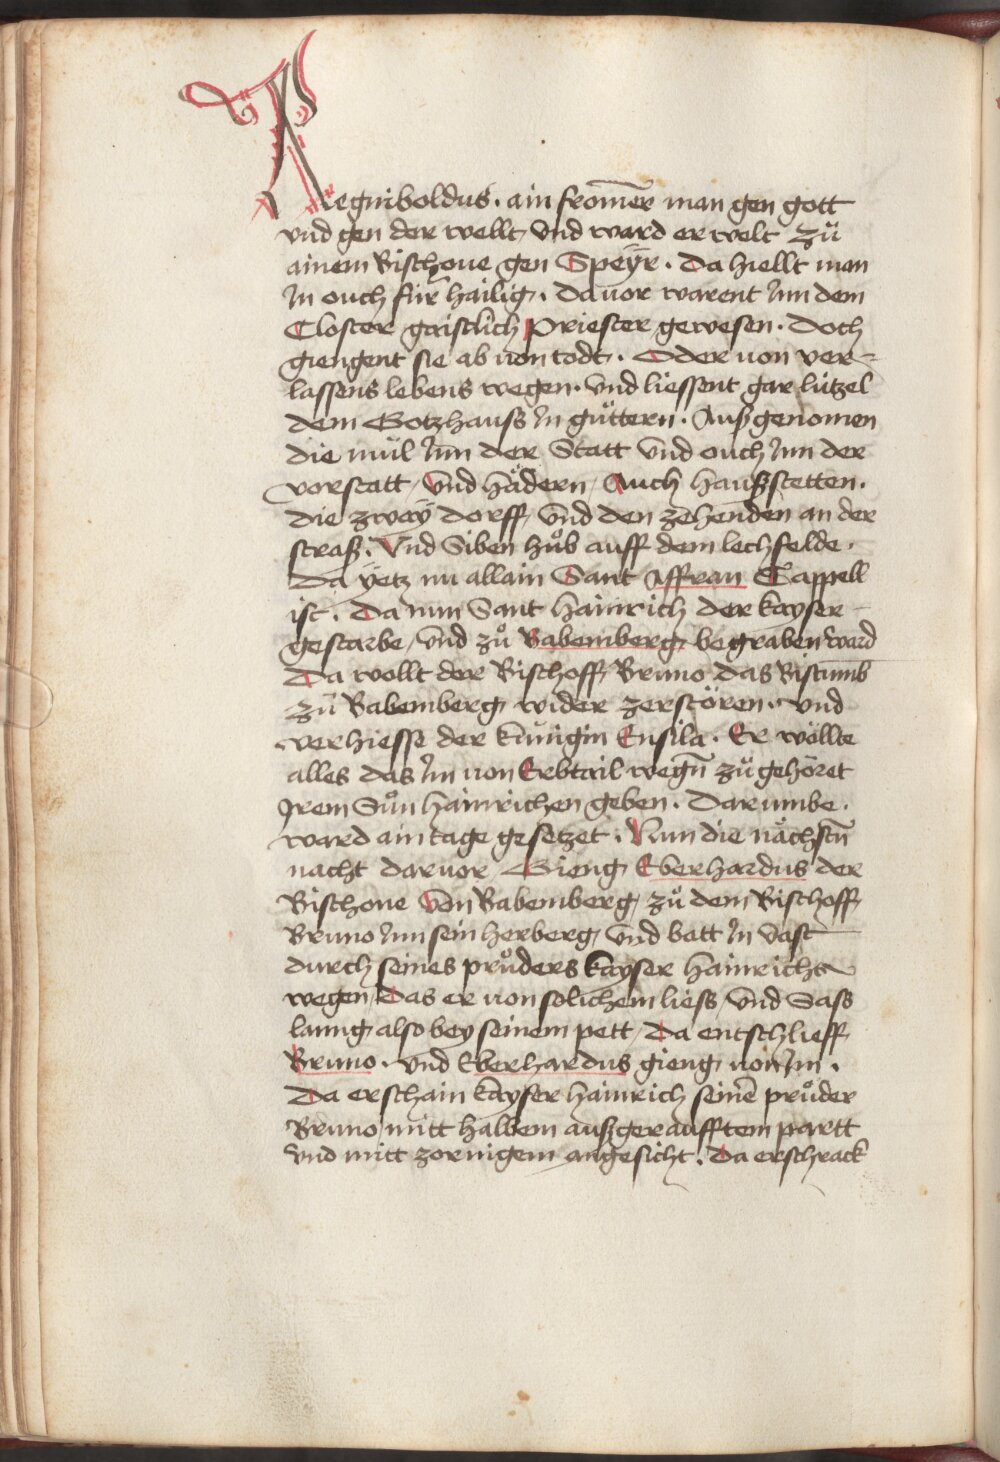 Regniboldus. ain from̄er man gen gott
vnd gen der wellt, vnd ward erwelt zů
ainem Bischoue gen Speÿr. Da hiellt man
In ouch für hailig. Dauor warent Inn dem
Closter gaistlich Priester gewesen. Doch
giengent sie ab von todt. Oder von ver-
lassens lebens wegen. vnd liessent gar lützel
dem Gotzhauss In güttern. Aussgenomen
die mül Inn der Statt vnd ouch Inn der
vorstatt, vnd hädern, Auch Haußstetten.
die zwaÿ dorff, vnd den zehenden an der
straß. Vnd Siben hůb auff dem lechfelde.
Da ÿetz nu allain Sant Affran Cappell
ist. Da nun Sant Hainrich der kayser
gestarbe, vnd zů Babemberg begraben ward
Da wollt der Bischoff Bruno das Bistumb
zů Babemberg wider zerstören. vnd
verhiesse der künigin Ensila. Er wöllte
alles das Im von Erbtail wegn̄ zůgehöret
Irem Sůn Hainrichen geben. Darumbe.
ward ain tage gesetzet. Nun die nächstn̄
nacht daruor, Gieng Eberhardus der
Bischoue von Babemberg, zů dem Bischoff
Bruno Inn sein herberg, vnd batt In vast
durch seines průders kayser Hainrichs
wegen, Das er von solichem liess, vnd Sass
lanng also bey seinem pett, Da entschlieff
Bruno. vnd Eberhardus gieng von Im.
Da erschain kayser Hainrich seinē průder
Bruno mitt halbem außgeraufftem partt
vnd mitt zornigem angesicht. Da erschrack